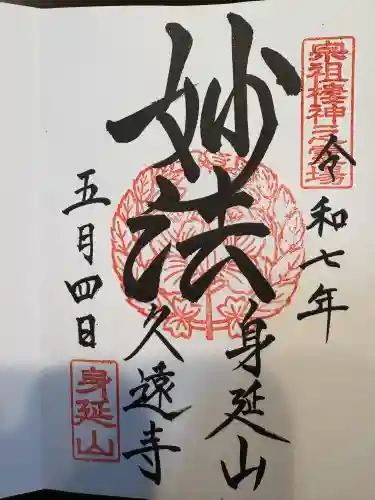 宗祖棲神之霊場
令和七年
妙法
身延山
久遠寺
五月四日
身延山